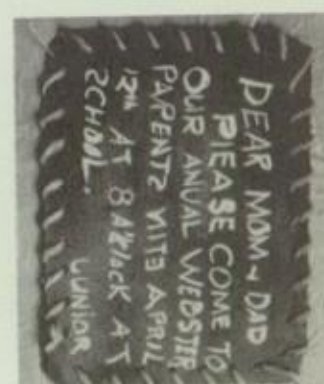 DEAR MOM & DAD
PLEASE COME TO
OUR ANUAL WEBSTER
PARENTS NITE APRIL
12th AT 8 A'Clock AT
SCHOOL.
JUNIOR